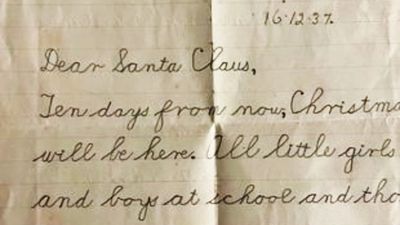 16.12.37.
Dear Santa Claus,
Ten days from now, Christma
will be here. All little girls
and boys at school and tho